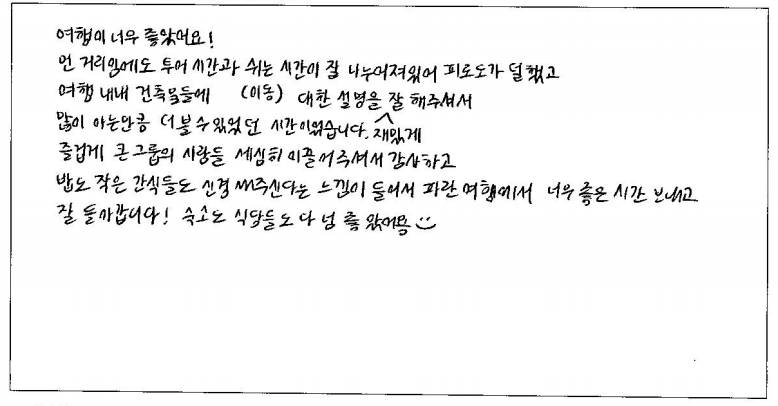 여행이 너무 좋았어요!
먼 거리임에도 투어 시간과 쉬는 시간이 잘 나누어져있어 피로도가 덜했고
여행 내내 건축물들에 (이동) 대한 설명을 잘 해주셔서
많이 아는만큼 더 볼 수 있었던 시간이었습니다. 재밌게
즐겁게 큰 그룹의 사람들 세심히 이끌어주셔서 감사하고
밥도 작은 간식들도 신경 써주신다는 느낌이 들어서 파란 여행에서 너무 좋은 시간 보내고
잘 돌아갑니다! 숙소도 식당들도 다 넘 좋았어용